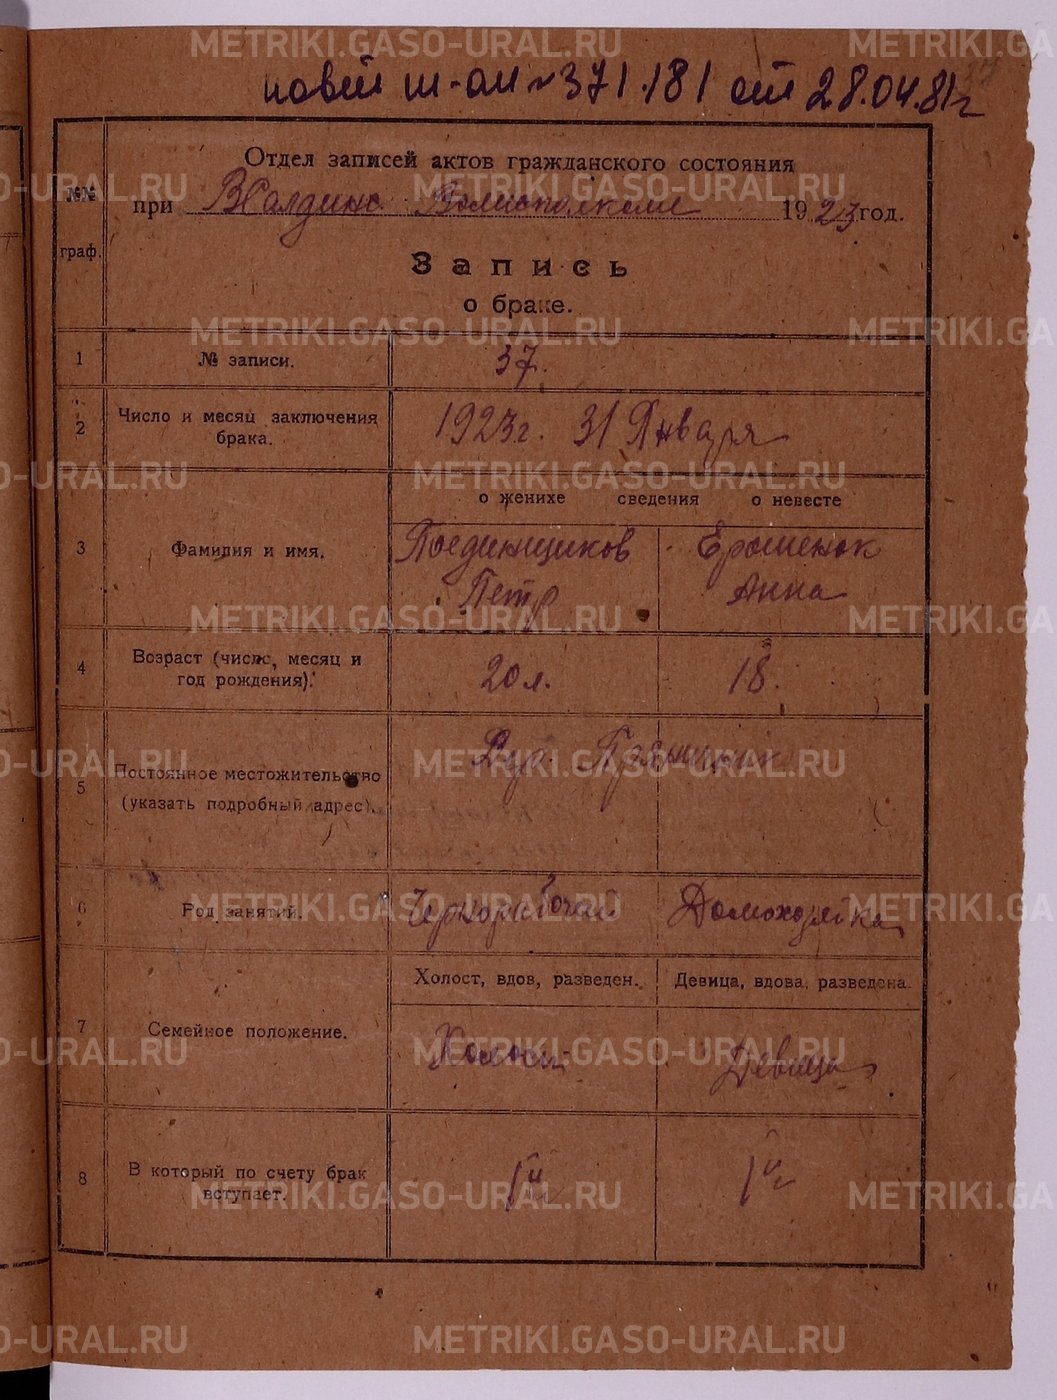 новый ш-ам № 371.181 от 28.04.81г
Отдел записей актов гражданского состояния
№№ граф.
при В Салдинс Волисполкоме 1923 год.
Запись
о браке.
1 № записи. 37.
2 Число и месяц заключения брака. 1923 г. 31 Января
о женихе сведения о невесте
3 Фамилия и имя. Поединщиков Ерошенок
Петр Анна
4 Возраст (число, месяц и год рождения). 20 л. 18.
5 Постоянное местожительство (указать подробный адрес). Дер.
6 Род занятий. Чернорабочий Домохозяйка
Холост, вдов, разведен. Девица, вдова, разведена.
7 Семейное положение. Холост Девица
8 В который по счету брак вступает. 1й 1й
METRIKI.GASO-URAL.RU